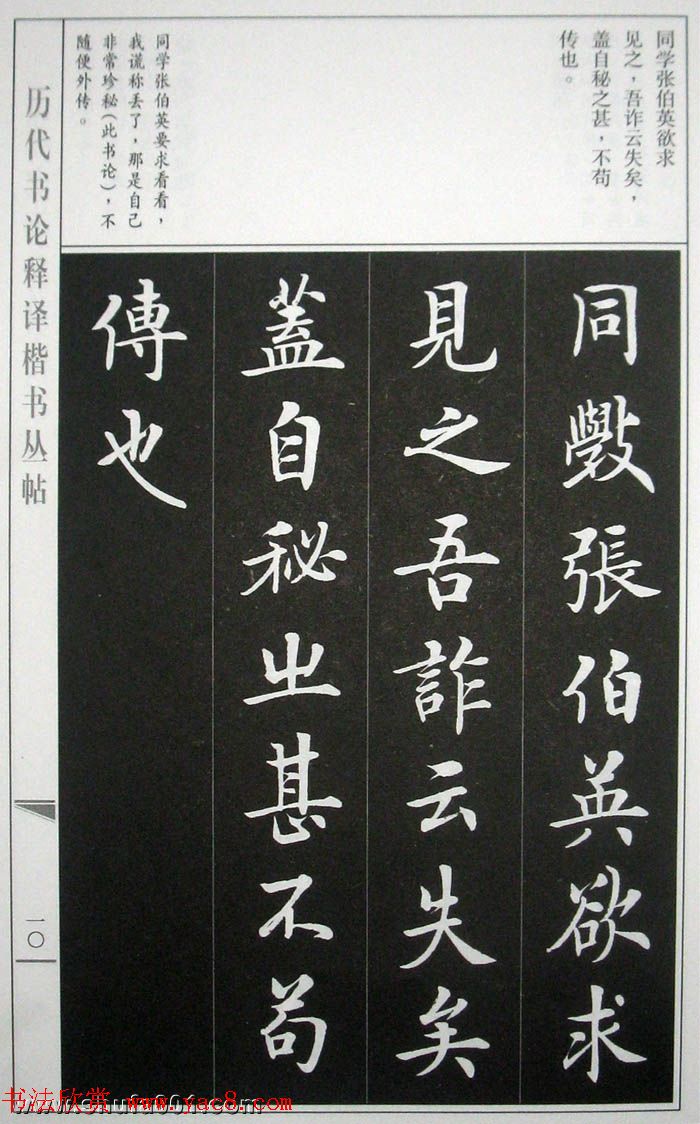 同学张伯英欲求
见之，吾诈云失矣，
盖自秘之甚，不苟
传也。
同学张伯英要求看看，
我谎称丢了，那是自己
非常珍秘（此书论），不
随便外传。
同斅張伯英欲求
見之吾詐云失矣
蓋自秘㞢甚不苟
傳也
历代书论释译楷书丛帖
一〇
书法欣赏 www.yac8.com